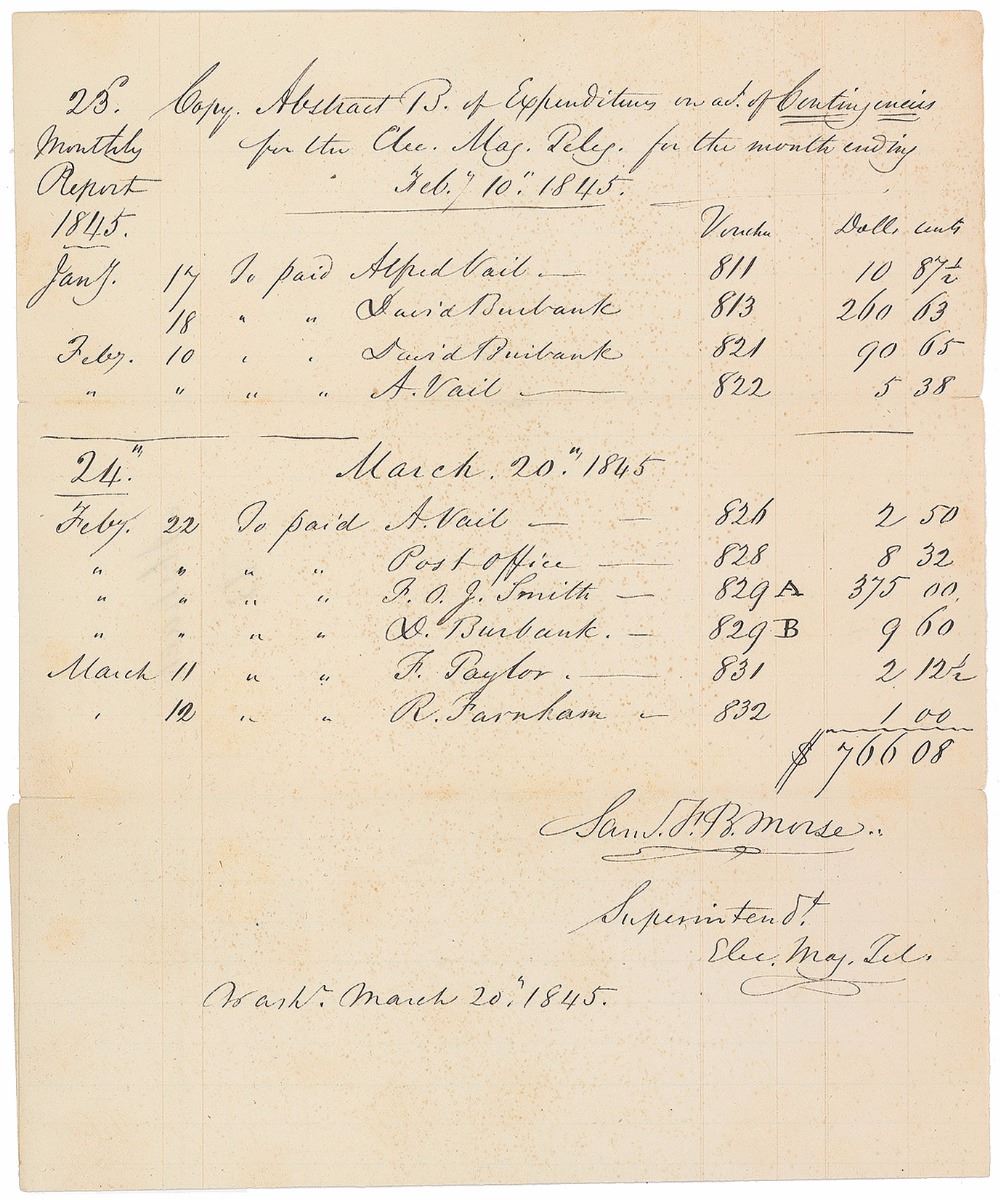 23. Copy. Abstract B. of Expenditures on act. of Contingencies
Monthly for the Elec. Mag. Teleg. for the month ending
Report Feby 10th. 1845.
1845. Voucher Dolls cents
Jany. 17 To paid Alfred Vail — 811 10 87½
18 " " David Burbank 813 260 63
Feby. 10 " " David Burbank 821 90 65
" " " " A. Vail — 822 5 38
24." March. 20." 1845
Feby. 22 To paid A. Vail — — 826 2 50
" " " " Post Office — 828 8 32
" " " " F. O. J. Smith — 829 A 375 00.
" " " " D. Burbank. — 829 B 9 60
March 11 " " F. Taylor. — 831 2 12½
" 12 " " R. Farnham — 832 1 00
$ 766 08
Saml. F. B. Morse..
Superintendt.
Elec. Mag. Tel.
Washn. March 20." 1845.